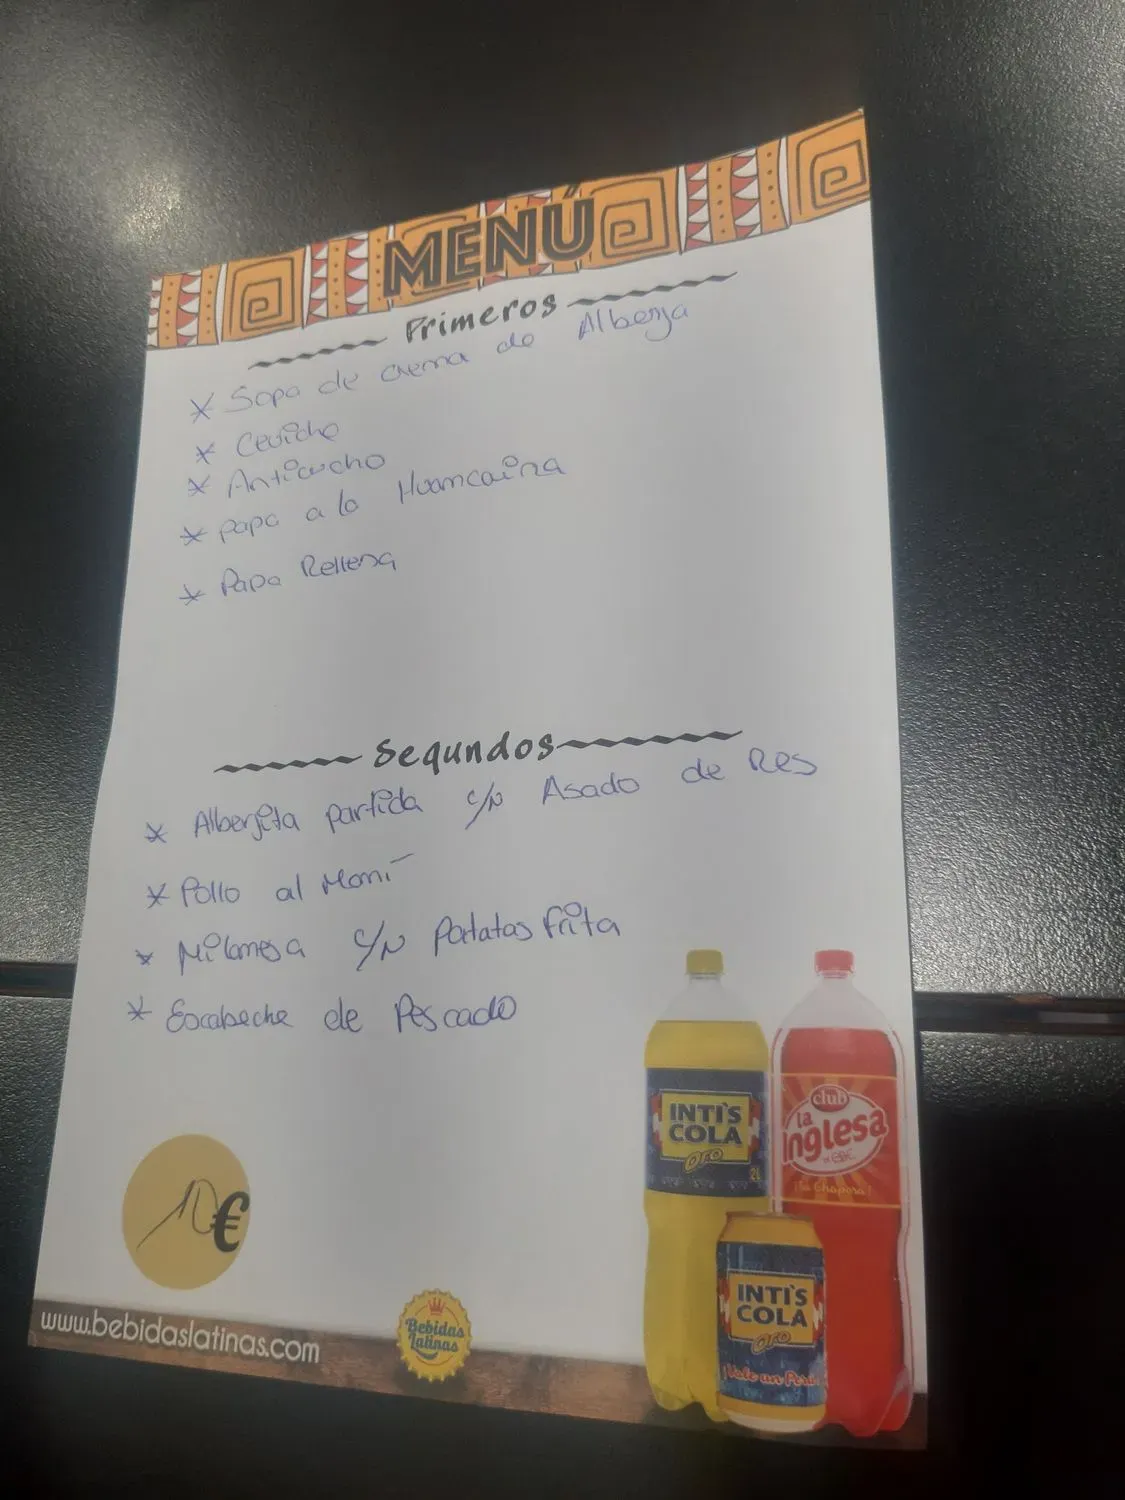 MENÚ
Primeros
* Sopa de crema de Alberja
* Ceviche
* Anticucho
* papa a la Huancaina
* Papa Rellena
Segundos
* Alberjita partida c/N Asado de Res
* Pollo al Maní
* Milanesa c/N Patatas frita
* Escabeche de Pescado
10€
INTI'S
COLA
Oro
2L
club
la
Inglesa
INTI'S
COLA
Oro
¡Vale un Perú!
www.bebidaslatinas.com
Bebidas
Latinas